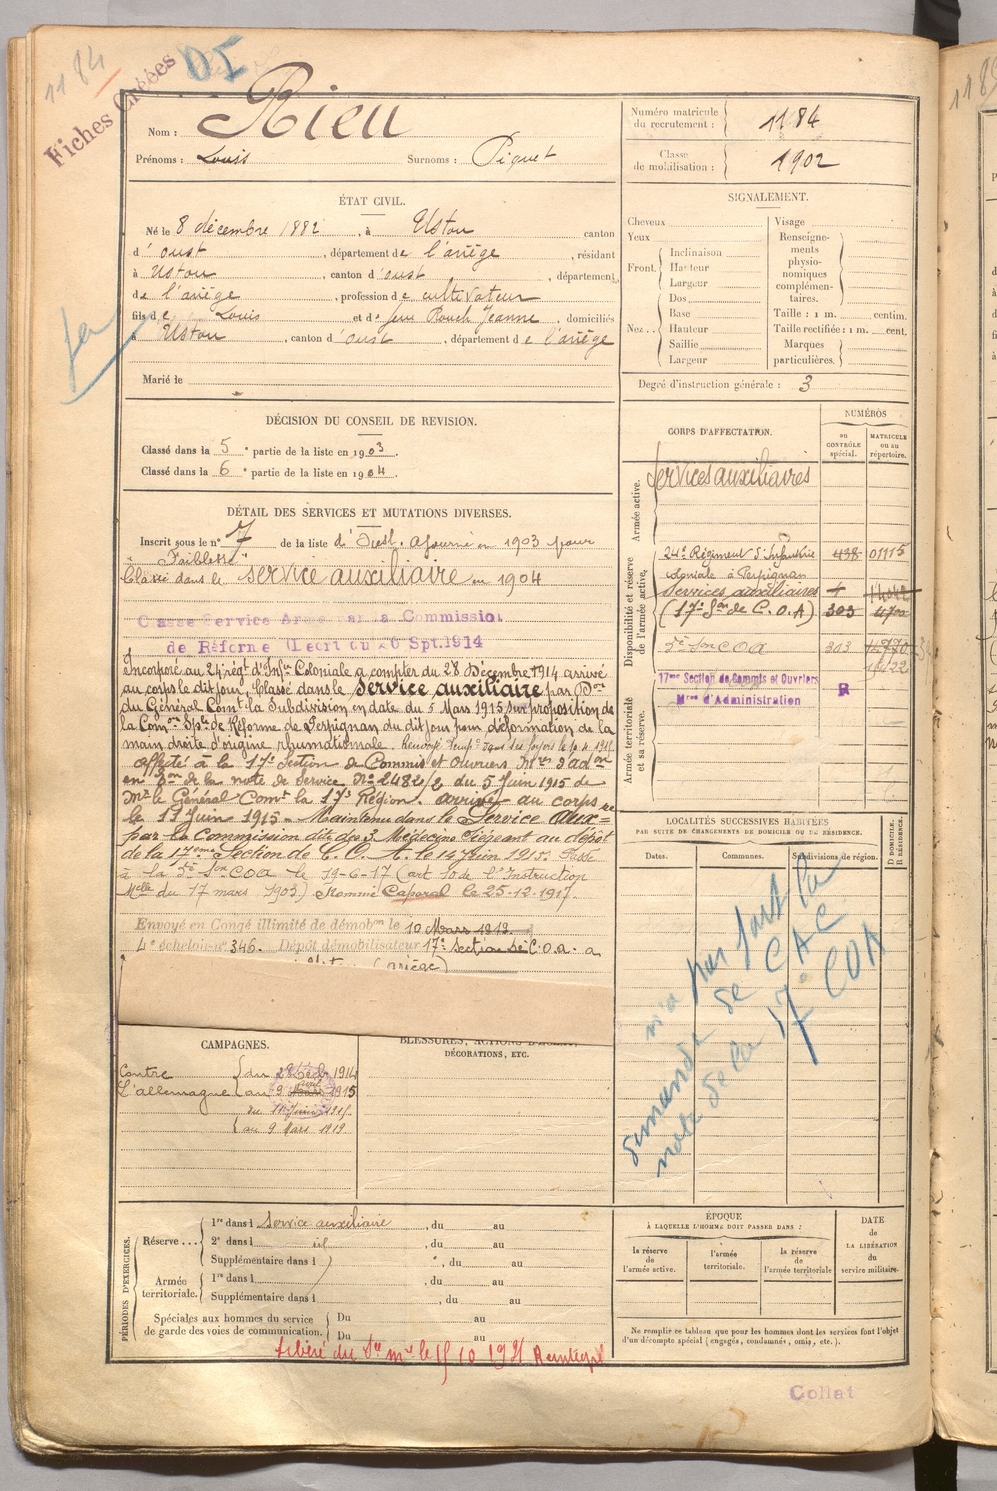 1184
Fiches Créées
Nom : Rieu
Prénoms : Louis Surnoms : Piquet
Numéro matricule du recrutement : 1184
Classe de mobilisation : 1902
ÉTAT CIVIL.
Né le 8 décembre 1882, à Ustou canton
d'oust, département de l'ariège, résidant
à Ustou, canton d'oust, département
de l'ariège, profession de cultivateur
fils de Louis et de feue Rouch Jeanne, domiciliés
à Ustou, canton d'oust, département de l'ariège
Marié le
SIGNALEMENT.
Cheveux
Yeux
Front. Inclinaison
Hauteur
Largeur
Nez.. Dos
Base
Hauteur
Saillie
Largeur
Visage
Renseignements physionomiques complémentaires.
Taille : 1 m. centim.
Taille rectifiée : 1 m. cent.
Marques particulières.
Degré d'instruction générale : 3
DÉCISION DU CONSEIL DE REVISION.
Classé dans la 5e partie de la liste en 1903.
Classé dans la 6e partie de la liste en 1904.
CORPS D'AFFECTATION.
NUMÉROS
au CONTRÔLE spécial.
MATRICULE ou au répertoire.
Armée active.
Services auxiliaires
Disponibilité et réserve de l'armée active.
24e Régiment d'Infanterie 438 01115
coloniale à Perpignan
Services auxiliaires
(17e Son de C.O.A) 303 4700
COA 303
17me Section de Commis et Ouvriers
Mres d'Administration
R
Armée territoriale et sa réserve.
DÉTAIL DES SERVICES ET MUTATIONS DIVERSES.
Inscrit sous le no 7 de la liste d'Oust. ajourné en 1903 pour
"Faiblesse"
Classé dans le service auxiliaire en 1904
Classé Service Armé par la Commission
de Réforme 20 Spt. 1914
Incorporé au 24e régt d'Infie Coloniale à compter du 28 Décembre 1914 arrivé
au corps le dit jour, Classé dans le Service auxiliaire par Don
du Général Comt la Subdivision en date du 5 Mars 1915 sur proposition de
la Comon Sple de Réforme de Perpignan du dit jour pour déformation de la
main droite d'origine rhumatismale. Renvoyé
affecté à la 17e Section de Commis et Ouvriers Mres d'admon
en Son de la note de Service No 2482/2 du 5 Juin 1915 de
Mr le Général Comt la 17e Région. arrivé au corps
le 11 Juin 1915 - Maintenu dans le Service Auxre
par la Commission dite des 3 Médecins siégeant au dépôt
de la 17eme Section de C.O.A. le 14 Juin 1915. Passé
à la COA le 19-6-17 (art 10 de l'Instruction
Melle du 17 mars 1903) Nommé Caporal le 25-12-1917.
Envoyé en Congé illimité de démobon le 10 Mars 1919.
4e échelon no 346. Dépôt démobilisateur 17e Section de C.O.A. a
(ariège)
LOCALITÉS SUCCESSIVES HABITÉES
PAR SUITE DE CHANGEMENTS DE DOMICILE OU DE RÉSIDENCE.
Dates. Communes. Subdivisions de région. D. DOMICILE. R. RÉSIDENCE.
n'a pas fait la
demande de CAC
note de la 17e COA
CAMPAGNES.
Contre du 28 Décbre 1914
L'allemagne au 9 avril 1915
du 11 Juin 1915
au 9 Mars 1919
BLESSURES, ACTIONS D'ÉCLAT,
DÉCORATIONS, ETC.
PÉRIODES D'EXERCICES.
Réserve... 1re dans l Service auxiliaire, du au
2e dans l id, du au
Supplémentaire dans l, du au
Armée territoriale. 1re dans l, du au
Supplémentaire dans l, du au
Spéciales aux hommes du service de garde des voies de communication. Du au
Du au
libéré du Sce mre le 15 10 1931
ÉPOQUE
À LAQUELLE L'HOMME DOIT PASSER DANS :
la réserve de l'armée active.
l'armée territoriale.
la réserve de l'armée territoriale
DATE de LA LIBÉRATION du service militaire.
Ne remplir ce tableau que pour les hommes dont les services font l'objet
d'un décompte spécial (engagés, condamnés, omis, etc.).
Collat